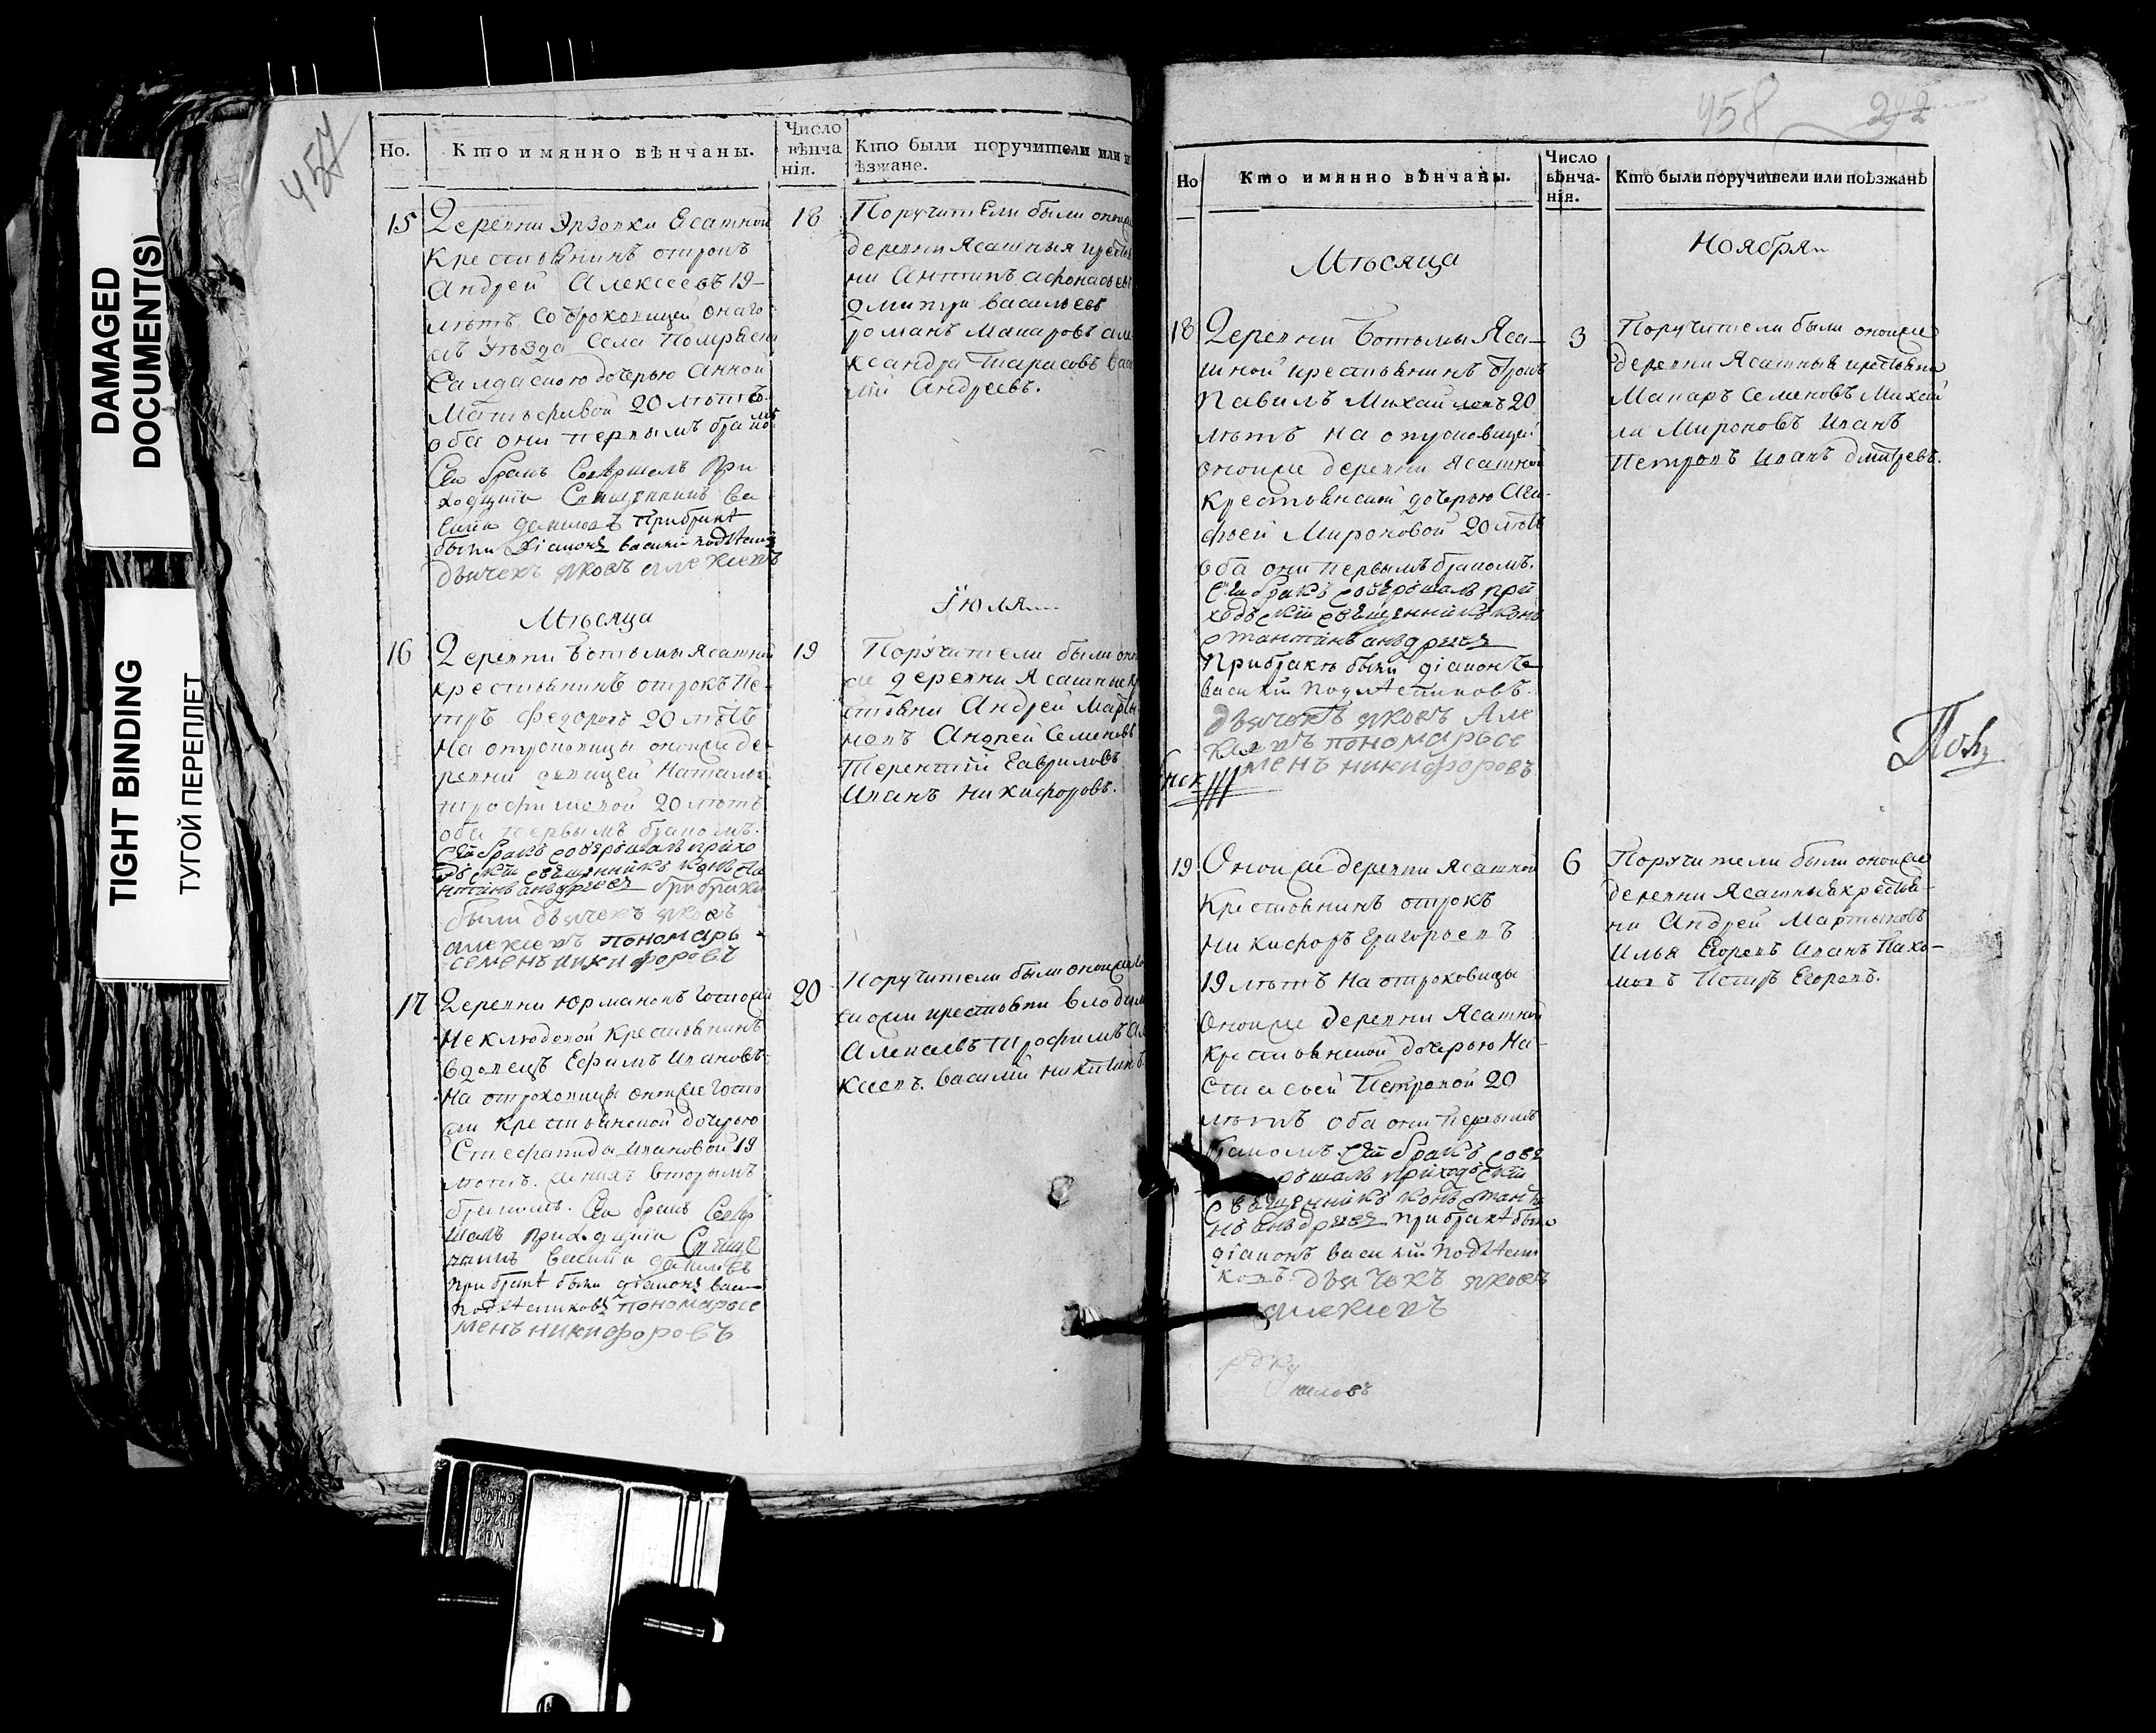 DAMAGED
DOCUMENT(S)
TIGHT BINDING
ТУГОЙ ПЕРЕПЛЕТ
457
Но.
Кто имянно вѣнчаны.
Число
вѣнча
нія.
Кто были поручители или п
ѣзжане.
15
Деревни Эрзовки Есашной
Крестьянинъ отрокъ
Андрей Алексеевъ 19
лѣтъ
Села
Салдацкою дочерью Анной
20 лѣтъ
оба они первымъ брако
Сей бракъ Совершалъ При
ходцкій Священникъ Ва
силій даниловъ Прибракѣ
были Діаконъ василій
дьячекъ яковъ алексеевъ
18
Поручители были оной
деревни Ясашныя кресть
ни Антипъ афонасьевъ
дмитри васильевъ
романъ Макаровъ але
ксандра Тарасовъ Васи
лій Андреевъ.
Мѣсяца
Іюля
16
Деревни Ботьмы Ясашной
крестьянинъ отрокъ Пе
тръ Федоровъ 20 лѣтъ
На отроковицы оной же де
ревни девицей Натальей
трофимовой 20 лѣтъ
оба первымъ бракомъ.
Сей бракъ совершалъ прихо
дъскій священникъ конъста
нтинъ анъдреевъ прибраке
были дьячекъ яковъ
алексеевъ пономарь
семенъ никифоровъ
19
Поручители были оной
же деревни Ясашные к
стьяни Андрей Марты
новъ Андрей Семеновъ
Терентий Гавриловъ
Иванъ никифоровъ.
17
Деревни Юрманокъ Госпожи
Неклюдовой Крестьянинъ
вдовецъ Ефимъ Ивановъ
На отроковицы оной же Госпо
жи крестьянской дочерью
Стефанида Ивановой 19
лѣтъ. женихъ вторымъ
бракомъ. Сей бракъ Совер
шалъ Приходцкій Священ
никъ Василій даниловъ
прибракѣ были діаконъ васи
пономарь се
менъ никифоровъ
20
Поручители были оной же
крестьяни влодим
Алексеевъ трофимъ Але
ксеевъ. василий никитинъ
458
292
Но
Кто имянно вѣнчаны.
Число
вѣнча-
нія.
Кто были поручители или поѣзжанѣ
Мѣсяца
Ноября
18
Деревни Ботьмы Яса-
шной крестьянинъ отрокъ
Павилъ Михайловъ 20
лѣтъ на отроковицей
оной же деревни Ясашной
крестьянской дочерью Ага
фьей Мироновой 20 лѣтъ
оба они первымъ бракомъ.
Сей бракъ совѣршалъ при
ходъскій священникъ конъ
стантинъ анъдреевъ
Прибракѣ были діаконъ
василий
дьячекъ яковъ Але
ксеевъ пономарь се
менъ никифоровъ
3
Поручители были оной же
деревни Ясашныя крестьяна
Макаръ Семеновъ Михай
ла Мироновъ Иванъ
Петровъ Иванъ дмитревъ.
19
Оной же деревни Ясашной
Крестьянинъ отрокъ
Никифоръ Григорьевъ
19 лѣтъ на отроковицы
Оной же деревни Ясашной
крестьянской дочерью На-
стасьей Петровой 20
лѣтъ оба они первымъ
бракомъ. Сей бракъ сове
ръшалъ приходъскій
священникъ конъстанти
нъ анъдреевъ прибракѣ были
діаконъ василий
дьячекъ яковъ
алексеевъ
6
Поручители были оной же
деревни Ясашныя крестья-
ни Андрей Мартыновъ
Илья Егоревъ Иванъ Пахо-
мовъ Петръ Егоревъ.